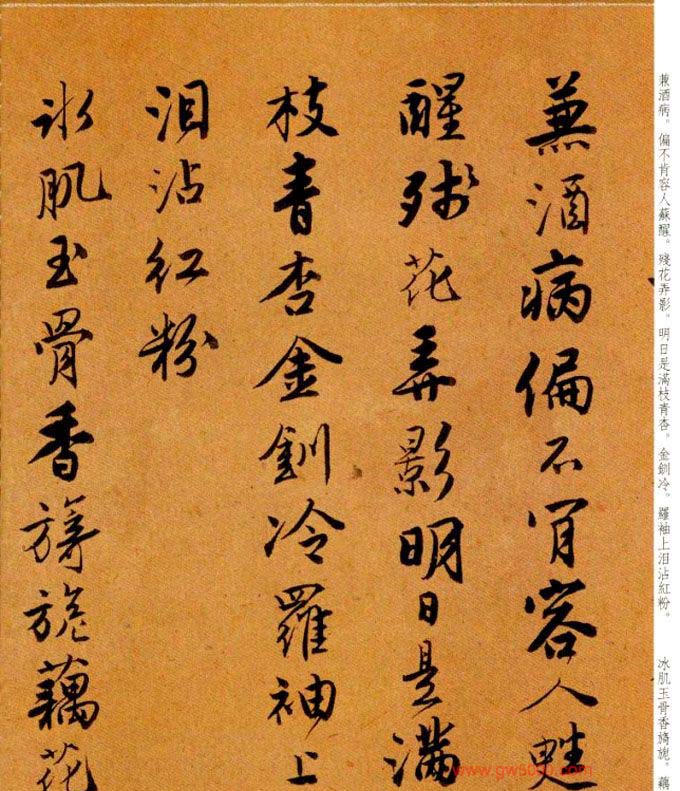 兼酒病偏不肯容人甦
醒殘花弄影明日是滿
枝青杏金釧冷羅袖上
泪沾紅粉
冰肌玉骨香旖旎藕花
兼酒病。偏不肯容人蘇醒。殘花弄影。明日是滿枝青杏。金釧冷。羅袖上泪沾紅粉。 冰肌玉骨香旖旎。藕